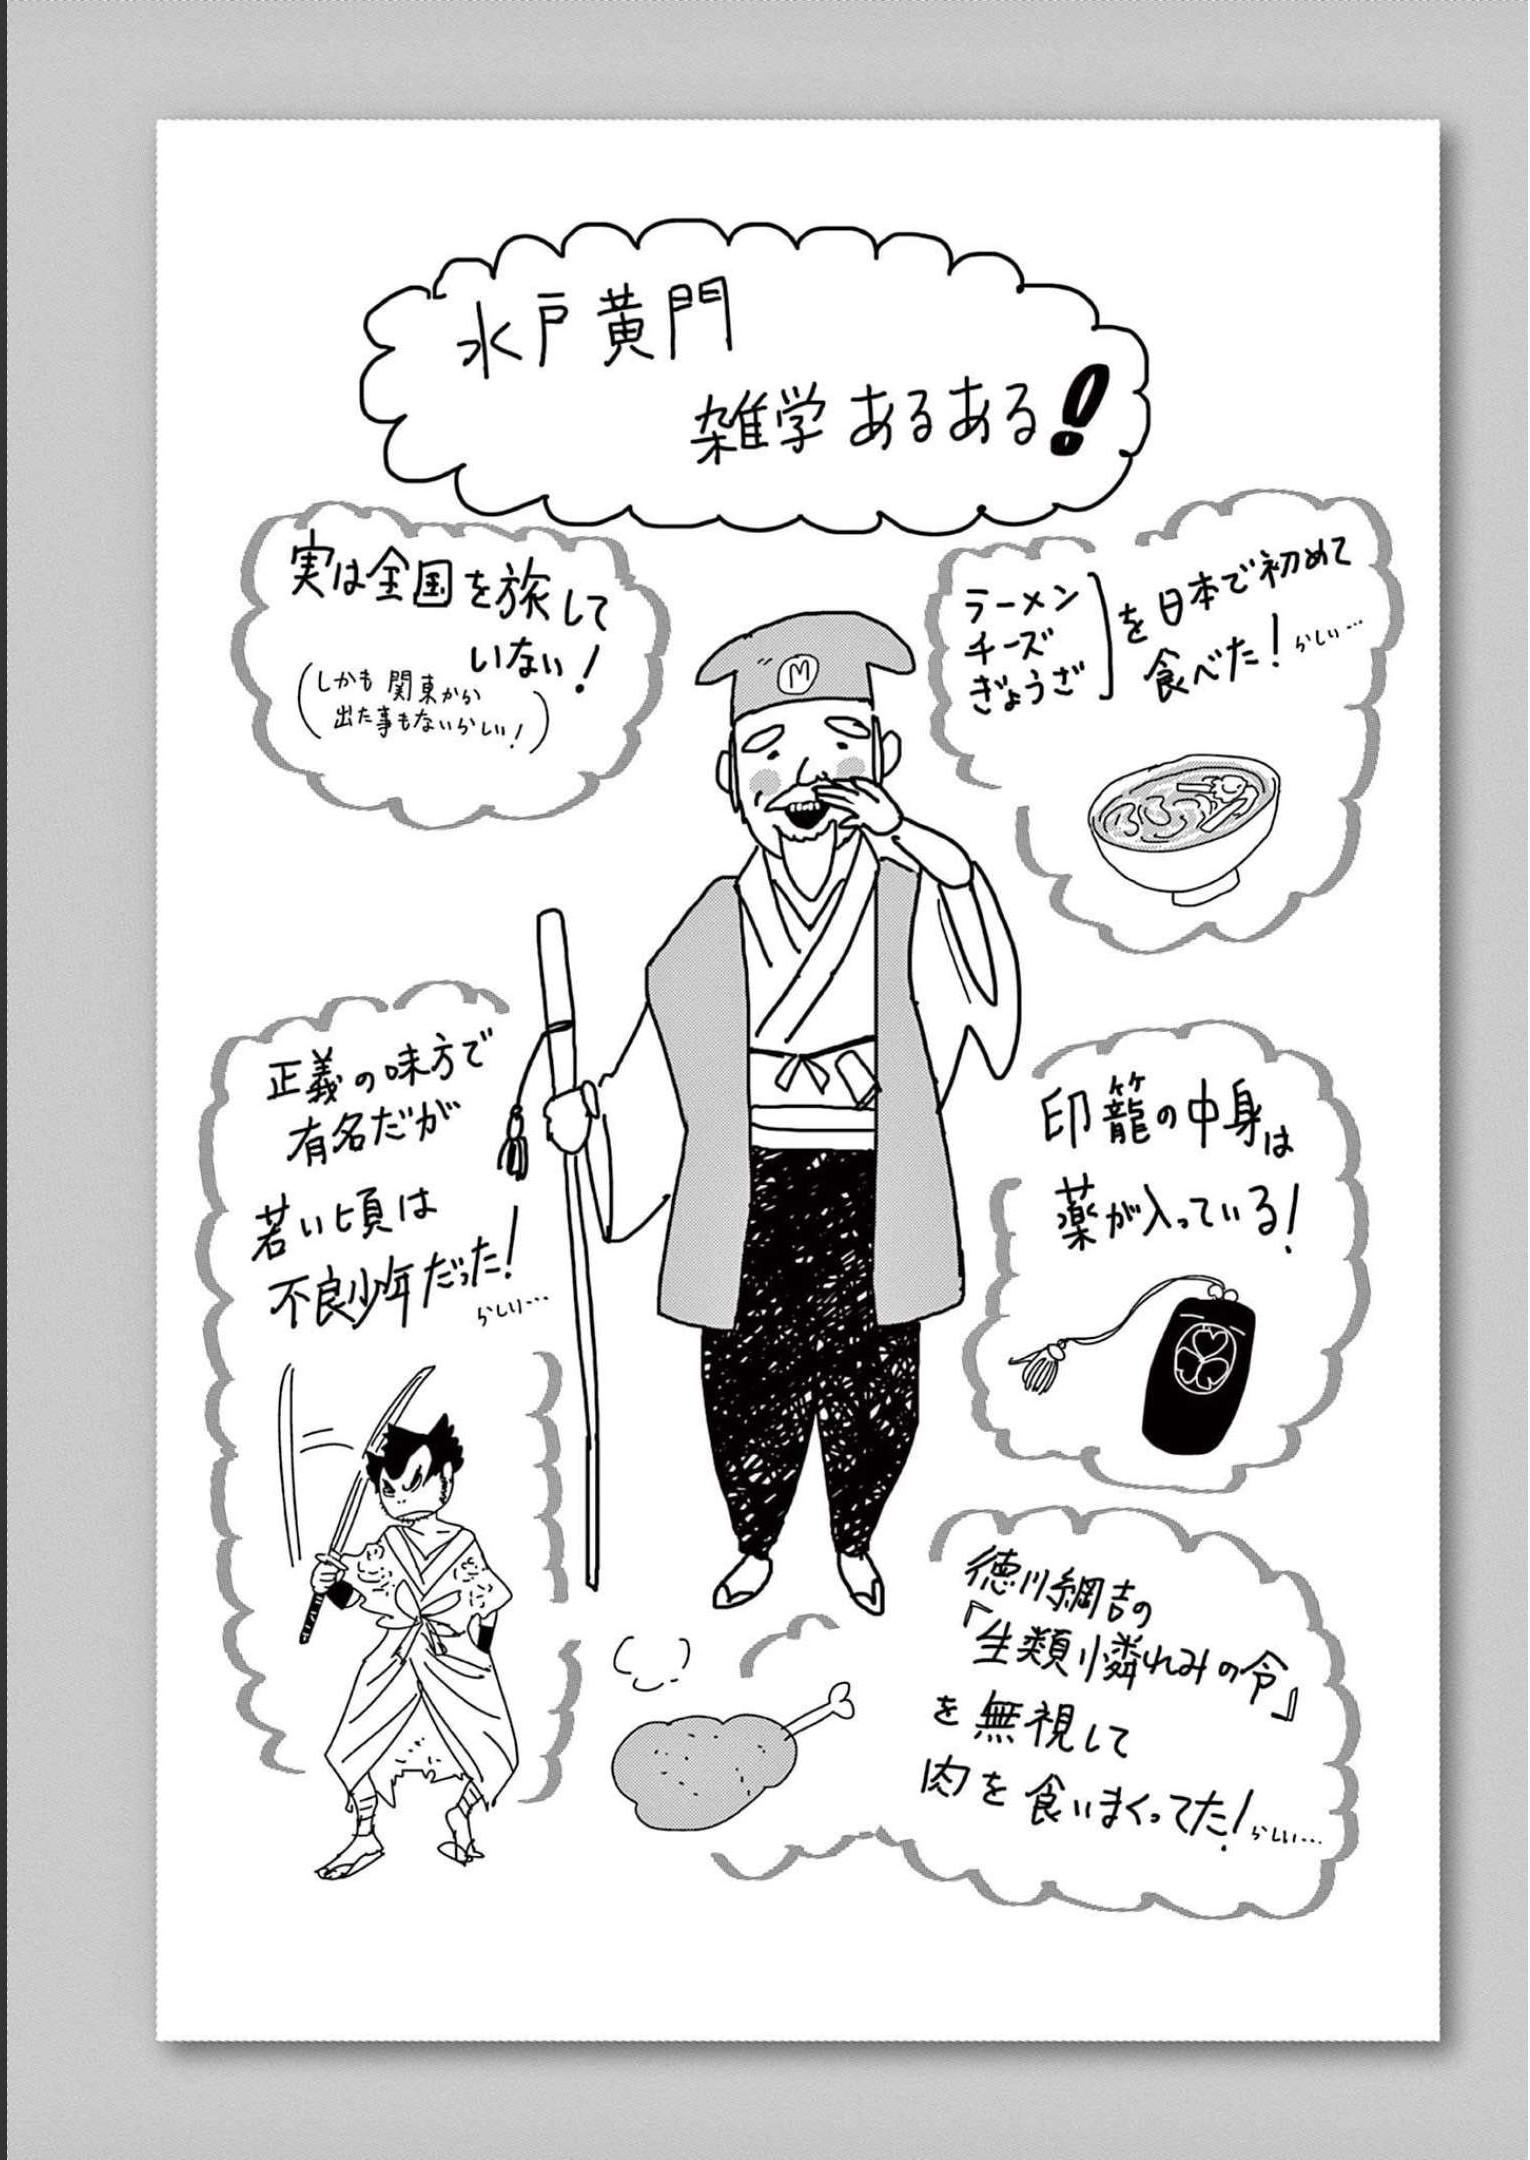 水戸黄門
雑学あるある!
実は全国を旅して
いない!
(しかも関東から
出た事もないらしい!)
ラーメン
チーズ
ぎょうざ
を日本で初めて
食べた!らしい…
M
正義の味方で
有名だが
若い頃は
不良少年だった!
らしい…
印籠の中身は
薬が入っている!
徳川綱吉の
『生類憐れみの令』
を無視して
肉を食いまくってた!らしい…